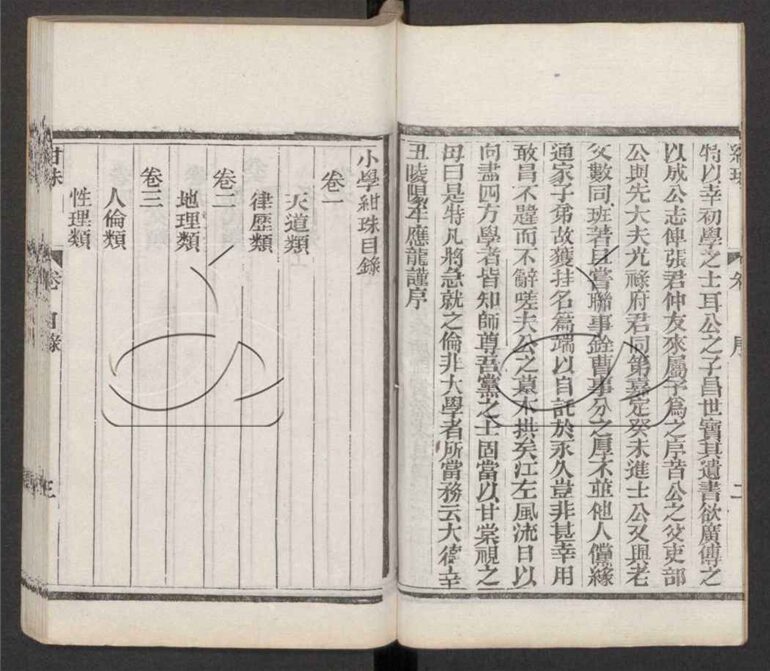 紺珠
卷
序
二
特以幸初學之士耳公之子昌世寶其遺書欲廣傳之
以成公志俾張君仲友來屬予爲之序昔公之父吏部
公與先大夫光祿府君同第嘉定癸未進士公又與老
父數同班著且嘗聯事銓曹事分之厚不並他人儻緣
通家子弟故獲挂名篇端以自託於永久豈非甚幸用
敢昌不韙而不辭嗟夫公之墓木拱矣江左風流日以
向盡四方學者皆知師尊吾黨之士固當以甘棠視之
毋曰是特凡將急就之倫非大學者所當務云大德辛
丑陵陽牟應龍謹序
小學紺珠目錄
卷一
天道類
律歷類
卷二
地理類
卷三
人倫類
性理類
紺珠
卷
目錄
三